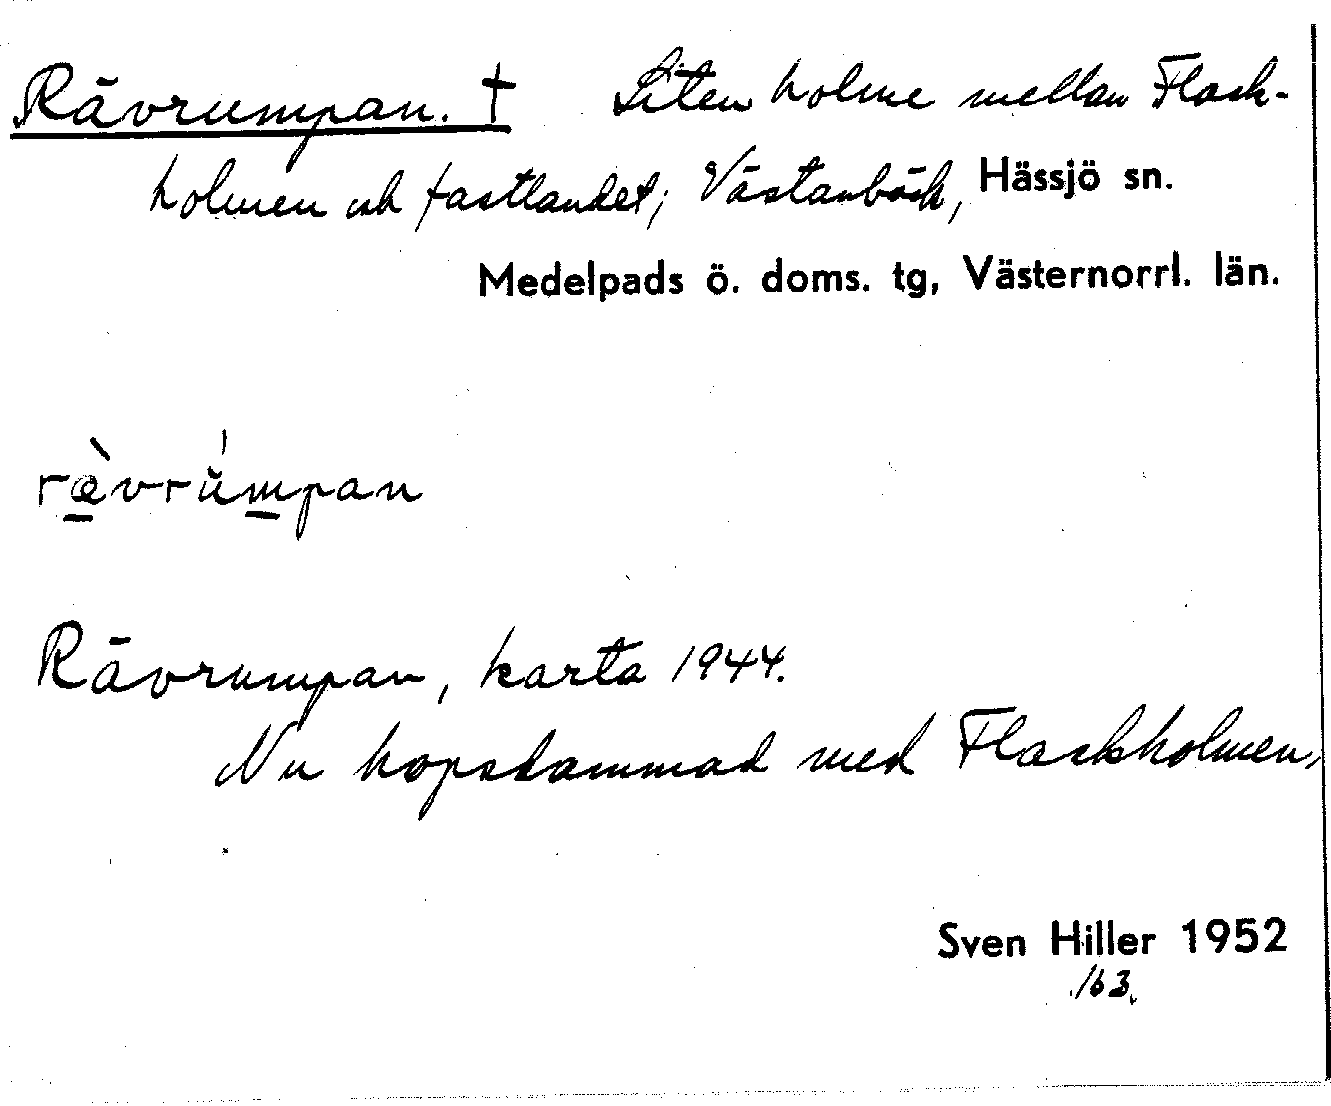 Rävrumpan. † Liten holme mellan Flask-
holmen och fastlandet; Västanbäck, Hässjö sn.
Medelpads ö. doms. tg, Västernorrl. län.
rævrumpan
Rävrumpan, karta 1944.
Nu hopdammad med Flaskholmen,
Sven Hiller 1952
163.